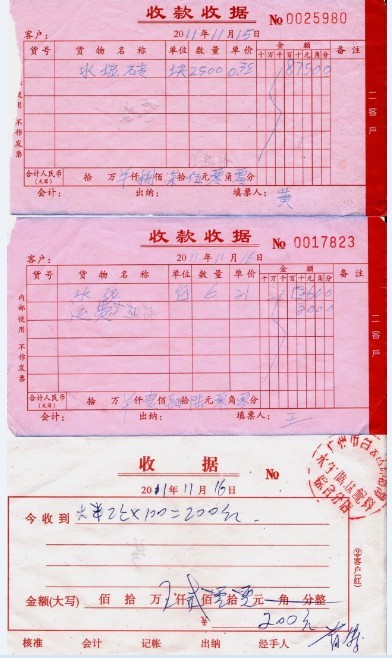 收款收据 No 0025980
客户： 2011年11月15日
货号 货物名称 单位 数量 单价 金额 备注
十 万 千 百 十 元 角 分
水泥砖 块 2500 0.35 87500
合计人民币（大写） 拾 万 仟 捌佰 柒拾 伍元 零角 零分
会计： 出纳： 填票人： 黄
内部使用 不作发票
二客户
收款收据 No 0017823
客户： 2011年11月16日
货号 货物名称 单位 数量 单价 金额 备注
十 万 千 百 十 元 角 分
水泥 包 6 21 12600
运费 2000
合计人民币（大写） 拾 万 仟 壹佰 肆拾 陆元 零角 零分
会计： 出纳： 填票人： 王
内部使用 不作发票
二客户
收据 No
2011年11月16日
今收到 2×100=200元
金额(大写) 佰 拾 万 仟 贰佰 零拾 零元 角 分整
¥ 200元
核准 会计 记帐 出纳 经手人
②客户(红)